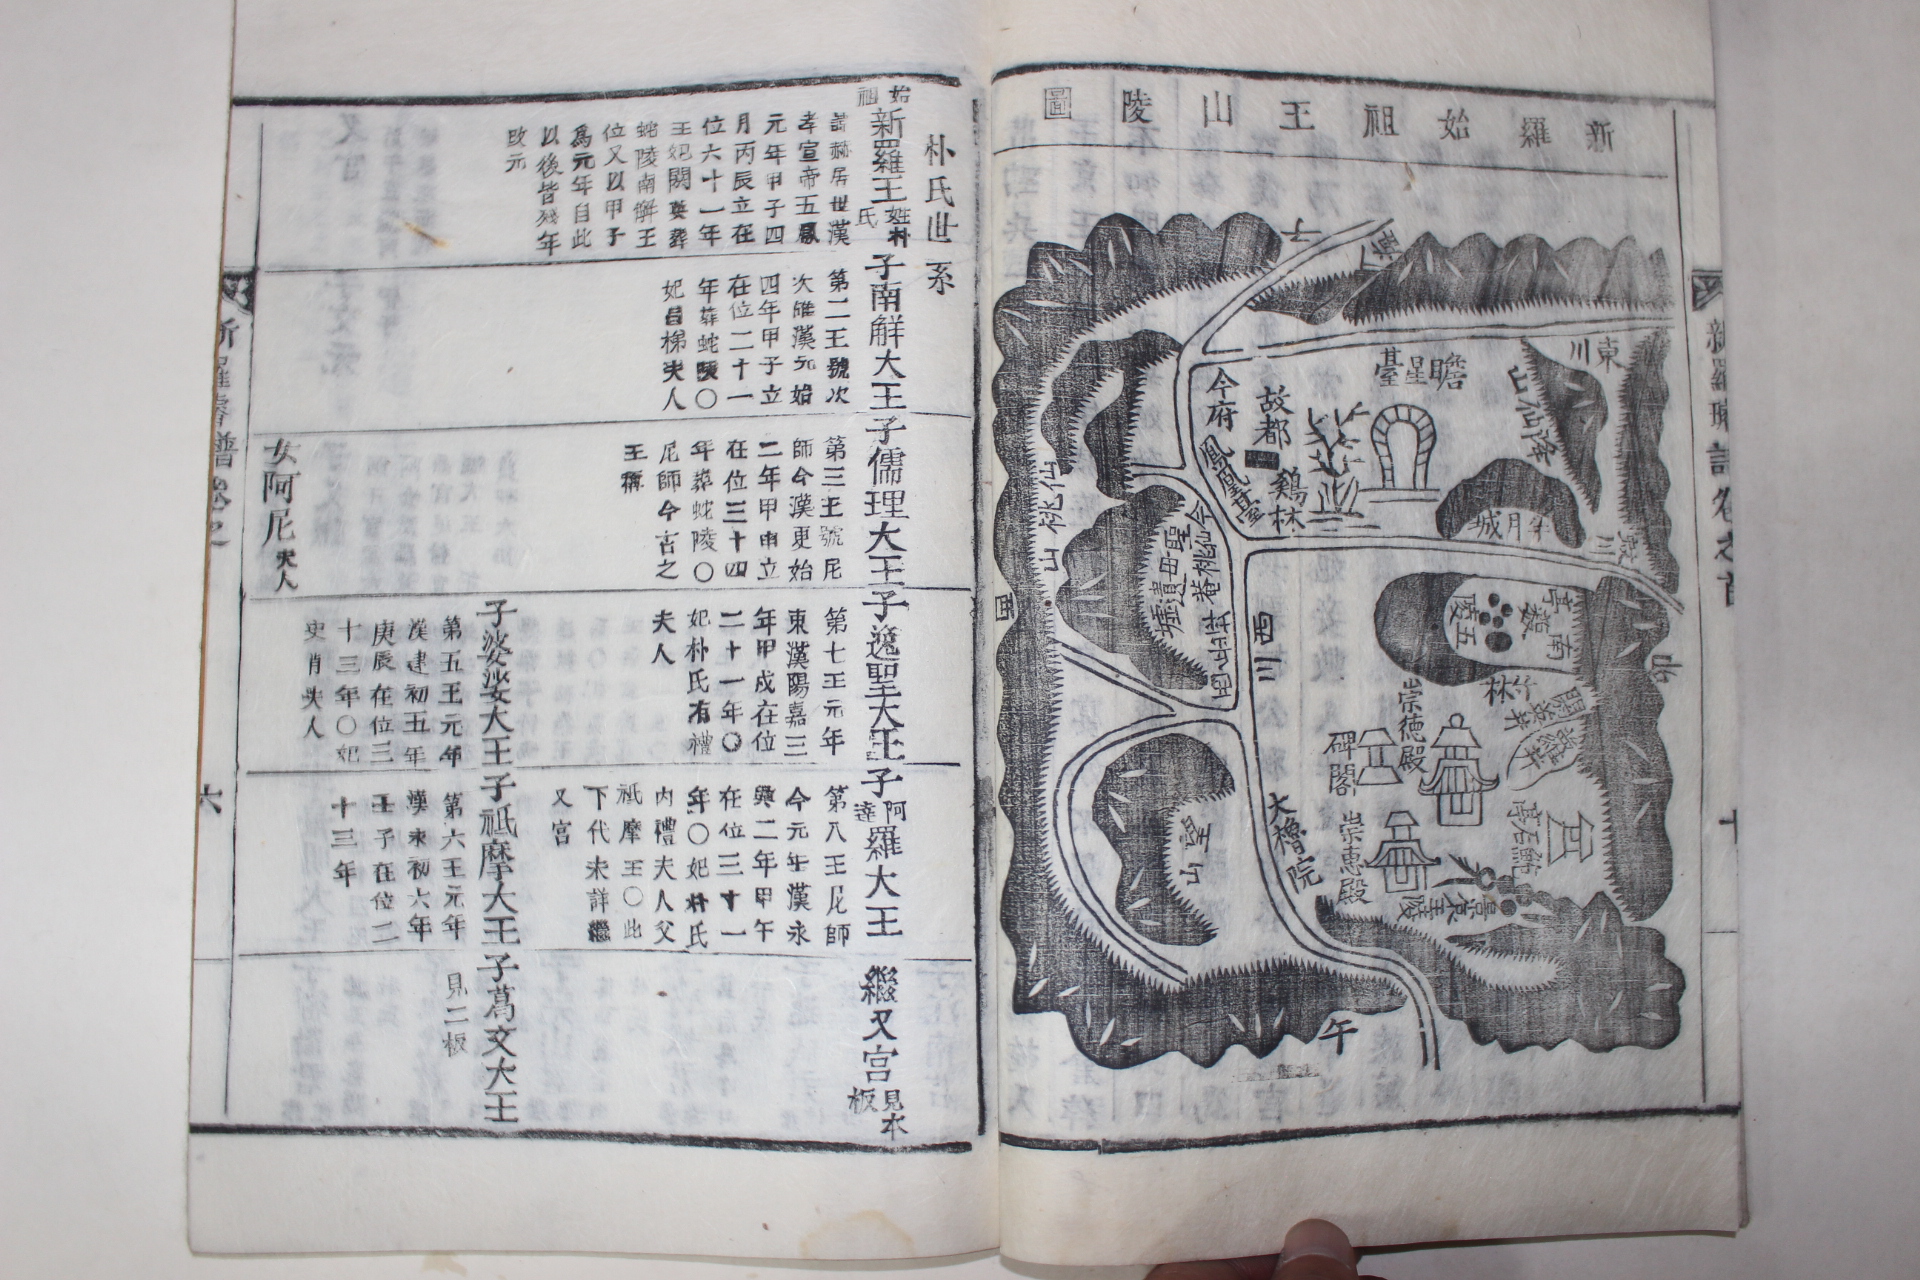 新羅始祖王山陵圖
瞻星臺
東川
今府
故都
鷄林
鳳凰臺
仙桃山
半月城
今仙桃菴
聖母遺墟
西川
五陵
南
林
崇德殿
碑閣
崇惠殿
大櫓院
望山
午
朴氏世系
始祖新羅王姓朴氏
諱赫居世漢
孝宣帝五鳳
元年甲子四
月丙辰立在
位六十一年
王妃閼英葬
蛇陵南解王
位又以甲子
爲元年自此
以後皆殘年
改元
子南解大王
第二王號次
次雄漢元始
四年甲子立
在位二十一
年葬蛇陵〇
妃昌梯夫人
子儒理大王
第三王號尼
師今漢更始
二年甲申立
在位三十四
年葬蛇陵〇
尼師今古之
王稱
女阿尼夫人
子逸聖大王
第七王元年
東漢陽嘉三
年甲戌在位
二十一年〇
妃朴氏有禮
夫人
子婆娑大王
第五王元年
漢建初五年
庚辰在位三
十三年〇妃
史肖夫人
子阿達羅大王
第八王尼師
今元年漢永
興二年甲午
在位三十一
年〇妃朴氏
内禮夫人父
祇摩王〇此
下代未詳繼
又宮
子祇摩大王
第六王元年
漢永初六年
壬子在位二
十三年
繼又宮見本板
子葛文大王
見二板
六